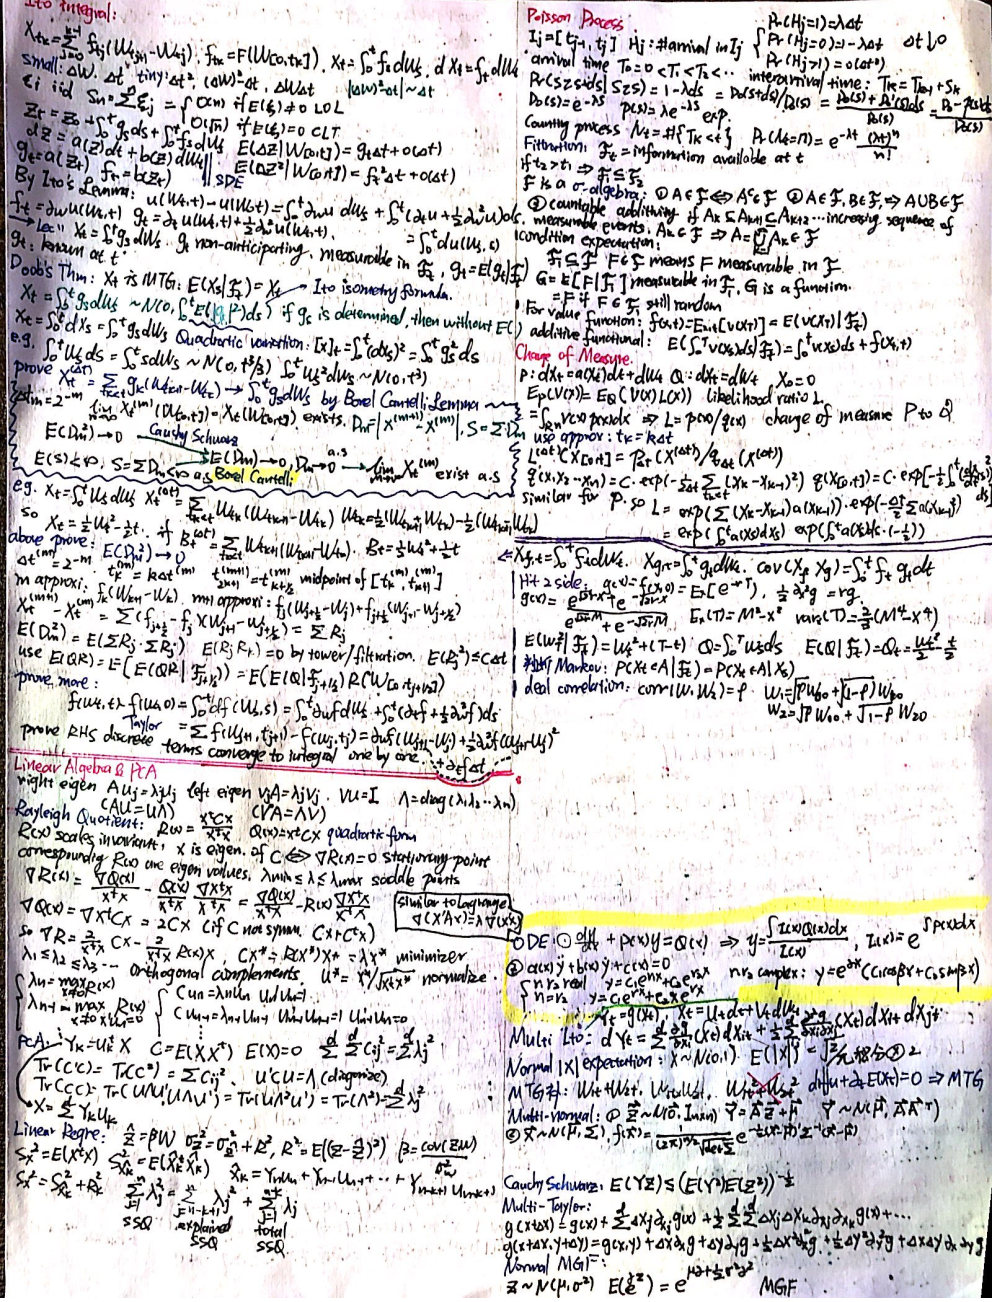 Ito Integral:
X_tk = Σ_{j=0}^{k-1} f_tj(W_{tj+1}-W_tj), f_tk = F(W[0,tk]), X_t = ∫_0^t f_s dW_s, dX_t = f_t dW_t
small: ΔW, Δt tiny: Δt², (ΔW)²-Δt, ΔWΔt |ΔW|²-Δt| ~ Δt
ξ_i iid S_n = Σξ_j = { O(n) if E(ξ_j)≠0 LOL
O(√n) if E(ξ)=0 CLT
Z_t = Z_0 + ∫_0^t g_s ds + ∫_0^t f_s dW_s E(ΔZ|W[0,t]) = g_tΔt + o(Δt)
dZ = a(Z)dt + b(Z)dW_t E(ΔZ²|W[0,t]) = f_t²Δt + o(Δt)
g_t = a(Z_t) f_t = b(Z_t) SDE
By Ito's Lemma: u(W_t,t) - u(W_0,t) = ∫_0^t ∂_w u dW_s + ∫_0^t (∂_t u + ½∂_w² u) ds
f_t = ∂_w u(W_t,t) g_t = ∂_t u(W_t,t) + ½∂_w² u(W_t,t) = ∫_0^t du(W_s,s)
X_t = ∫_0^t g_s dW_s g_t non-anticipating, measurable in F_t, g_t = E(g_t|F_t)
g_t: known at t
Doob's Thm: X_t is MTG: E(X_s|F_t) = X_t Ito isometry formula.
X_t = ∫_0^t g_s dW_s ~ N(0, ∫_0^t E(|g_s|²)ds) if g_s is determinal, then without E( )
X_t = ∫_0^t dX_s = ∫_0^t g_s dW_s Quadratic variation: [X]_t = ∫_0^t (dX_s)² = ∫_0^t g_s² ds
e.g. ∫_0^t W_s ds = ∫_0^t s dW_s ~ N(0, t³/3) ∫_0^t W_s² dW_s ~ N(0, t³)
prove X_t^(Δt) = Σ g_tk(W_{tk+1}-W_tk) → ∫_0^t g_s dW_s by Borel Cantelli Lemma
Δt_m = 2^-m lim X_t^(m)(W[0,t]) = X_t(W[0,t]) exists. D_m = |X^(m+1) - X^(m)|, S = ΣD_m
E(D_m²)→0 Cauchy Schwarz E(D_m)→0, D_m→0 a.s → lim X_t^(m) exist a.s
E(S)<∞, S = ΣD_m<∞ a.s Borel Cantelli
e.g. X_t = ∫_0^t W_s dW_s X_t^(Δt) = Σ W_tk(W_{tk+1}-W_tk) W_tk = ½(W_{tk+1}+W_tk) - ½(W_{tk+1}-W_tk)
so X_t = ½W_t² - ½t. if B_t^(Δt) = Σ W_{tk+1}(W_{tk+1}-W_tk). B_t = ½W_t² + ½t
above prove: E(D_m²)→0
Δt^(m) = 2^-m t_k^(m) = kΔt^(m) t_{2k+1}^(m+1) = t_{k+½}^(m) midpoint of [t_k^(m), t_{k+1}^(m)]
m approxi: f_k(W_{k+1}-W_k). m+1 approxi: f_j(W_{j+½}-W_j) + f_{j+½}(W_{j+1}-W_{j+½})
X_t^(m+1) - X_t^(m) = Σ(f_{j+½}-f_j)(W_{j+1}-W_{j+½}) = ΣR_j
E(D_m²) = E(ΣR_j ΣR_j) E(R_j R_k)=0 by tower/filtration. E(R_j²) ≤ CΔt
use E(QR) = E[E(QR|F_{j+½})] = E(E(Q|F_{j+½}) R(W[0,t_{j+½}])
prove more:
f(W_t,t) - f(W_0,0) = ∫_0^t df(W_s,s) = ∫_0^t ∂_w f dW_s + ∫_0^t (∂_t f + ½∂_w² f) ds
Taylor = Σ f(W_{j+1},t_{j+1}) - f(W_j,t_j) = ∂_w f(W_{j+1}-W_j) + ½∂_w² f(W_{j+1}-W_j)²
prove RHS discrete terms converge to integral one by one + ∂_t f Δt
Linear Algebra & PCA
right eigen Au_j = λ_j u_j left eigen v_j A = λ_j v_j VU = I Λ = diag(λ_1 λ_2 … λ_n)
(AU = UΛ) (VA = ΛV)
Rayleigh Quotient: R(x) = x^tCx / x^tx Q(x) = x^tCx quadratic form
R(x) scales invariant, x is eigen. of C ⇔ ∇R(x)=0 stationary point
corresponding R(x) are eigen values. λmin ≤ λ ≤ λmax saddle points
∇R(x) = ∇Q(x)/x^tx - Q(x)/x^tx ∇x^tx/x^tx = ∇Q(x)/x^tx - R(x) ∇x^tx/x^tx
similar to Lagrange ∇(x'Ax) = λ∇(x'x)
∇Q(x) = ∇x^tCx = 2Cx (if C not symm. Cx + C^tx)
so ∇R = 2/x^tx Cx - 2/x^tx R(x)x, Cx* = R(x*)x* = λx* minimizer
λ_1 ≤ λ_2 ≤ λ_3 … orthogonal complements. u* = x*/√x*^tx* normalize
λ_n = max_{x≠0} R(x) { Cu_n = λ_n u_n u_n'u_n = 1
λ_{n-1} = max_{x≠0 x'u_n=0} R(x) Cu_{n-1} = λ_{n-1}u_{n-1} u_{n-1}'u_{n-1} = 1 u_{n-1}'u_n = 0
PCA: Y_k = u_k^t X C = E(XX^t) E(X)=0 ΣΣ C_ij² = Σ λ_j²
Tr(C'C) = Tr(C²) = ΣC_ij². U'CU = Λ (diagonize)
Tr(CC) = Tr(UΛU'UΛU') = Tr(UΛ²U') = Tr(Λ²) = Σλ_j²
X = Σ Y_k u_k
Linear Regre: Ẑ = βW σ_Z² = σ_Ẑ² + R², R² = E[(Z-Ẑ)²] β = cov(ZW)/σ_w²
S_x² = E(X^tX) S_X̂k² = E(X̂_k^t X̂_k) X̂_k = Y_n u_n + Y_{n-1}u_{n-1} + … + Y_{n-k+1}u_{n-k+1}
S_x² = S_X̂k² + R_k² Σλ_j² = Σλ_j² + Σλ_j
SSQ explained SSQ total SSQ
Poisson Process
I_j = [t_{j-1}, t_j] H_j: #arrival in I_j { Pr(H_j=1) = λΔt
Pr(H_j=0) = 1-λΔt Δt↓0
Pr(H_j>1) = o(Δt)
arrival time T_0=0<T_1<T_2<… interarrival time: T_{k+1} = T_k + S_k
Pr(S≥s+ds|S≥s) = 1-λds = P_0(s+ds)/P_0(s) = (P_0(s)+P_0'(s)ds)/P_0(s)
P_0(s) = e^-λs p(s) = λe^-λs exp.
Counting process N_t = #{T_k<t} Pr(N_t=n) = e^-λt (λt)^n/n!
Filtration: F_t = information available at t
if t_2>t_1 ⇒ F_1 ⊆ F_2
F is a σ-algebra: ① A∈F ⇔ A^c∈F ② A∈F, B∈F, ⇒ A∪B∈F
③ countable additivity if A_k ⊆ A_{k+1} ⊆ A_{k+2} … increasing sequence of
measurable events, A_k∈F ⇒ A = ∪A_k∈F
condition expectation:
F_1⊆F F∈F means F measurable in F.
G = E[F|F_1] measurable in F_1 G is a function.
= F if F∈F_1 still random
For value function: f(x,t) = E_{x,t}[V(X_T)] = E(V(X_T)|F_t)
additive functional: E(∫_0^T V(X_s)ds|F_t) = ∫_0^t V(X_s)ds + f(X_t,t)
Change of Measure.
P: dX_t = a(X_t)dt + dW_t Q: dX_t = dW_t X_0=0
E_P(V(X)) = E_Q(V(X)L(X)) likelihood ratio L
= ∫_{R^n} V(x)p(x)dx ⇒ L = p(x)/q(x) change of measure P to Q
use approx: t_k = kΔt
L^(Δt)(X[0,t]) = P_Δt(X^(Δt))/q_Δt(X^(Δt))
q(x_1 x_2 … x_n) = C·exp(-1/2Δt Σ(x_k-x_{k-1})²)
similar for p. so L = exp(Σ(X_k-X_{k-1})a(X_{k-1})) · exp(-Δt/2 Σa(X_{k-1})²)
= exp(∫_0^t a(X_s)dX_s) exp(∫_0^t a(X_s)²ds·(-½))
X_{f,t} = ∫_0^t f_t dW_t X_{g,t} = ∫_0^t g_t dW_t. cov(X_f X_g) = ∫_0^t f_t g_t dt
Hit 2 side: = E_x[e^-rτ], ½∂_x² g = rg.
E_x(τ) = M²-x² var_x(τ) = ⅔(M⁴-x⁴)
E(W_T²|F_t) = W_t² + (T-t) Q = ∫_0^T W_s ds
Markov: P(X_t∈A|F_t) = P(X_t∈A|X_s)
deal correlation: corr(W_1 W_2) = ρ W_1 = √ρ W_00 + √(1-ρ) W_10
W_2 = √ρ W_00 + √(1-ρ) W_20
ODE ① dy/dx + p(x)y = Q(x) ⇒ y = ∫I(x)Q(x)dx / I(x), I(x) = e^{∫p(x)dx}
② a(x)ÿ + b(x)ẏ + c(x) = 0
{ r_1 r_2 real y = c_1e^{r_1x} + c_2e^{r_2x} r_1 r_2 complex: y = e^{αx}(c_1cosβx + c_2sinβx)
r_1=r_2 y = c_1e^{rx} + c_2xe^{rx}
Y_t = g(X_t) X_t = U_tdt + V_tdW_t
Multi Ito: dY_t = Σ ∂g/∂x_i (X_t)dX_it + ½ΣΣ ∂²g/∂x_i∂x_j (X_t)dX_it dX_jt
Normal |X| expectation: X~N(0,1) E(|X|) = √2/π
MTG: d_t u + ∂_t E(X_t) = 0 ⇒ MTG
Multi-normal: ① Z~N(0, I_{n×n}) Y = AZ + μ Y~N(μ, AA^T)
② X~N(μ,Σ), f(x) = 1/((2π)^{n/2}√detΣ) e^{-½(x-μ)'Σ^-1(x-μ)}
Cauchy Schwarz: E(YZ) ≤ (E(Y²)E(Z²))^½
Multi-Taylor:
g(x+Δx) = g(x) + ΣΔx_j∂x_j g(x) + ½ΣΣΔx_jΔx_k∂x_j∂x_k g(x) + …
g(x+Δx, y+Δy) = g(x,y) + Δx∂_x g + Δy∂_y g + ½Δx²∂_x² g + ½Δy²∂_y² g + ΔxΔy ∂_x∂_y g
Normal MGF:
Z~N(μ,σ²) MGF